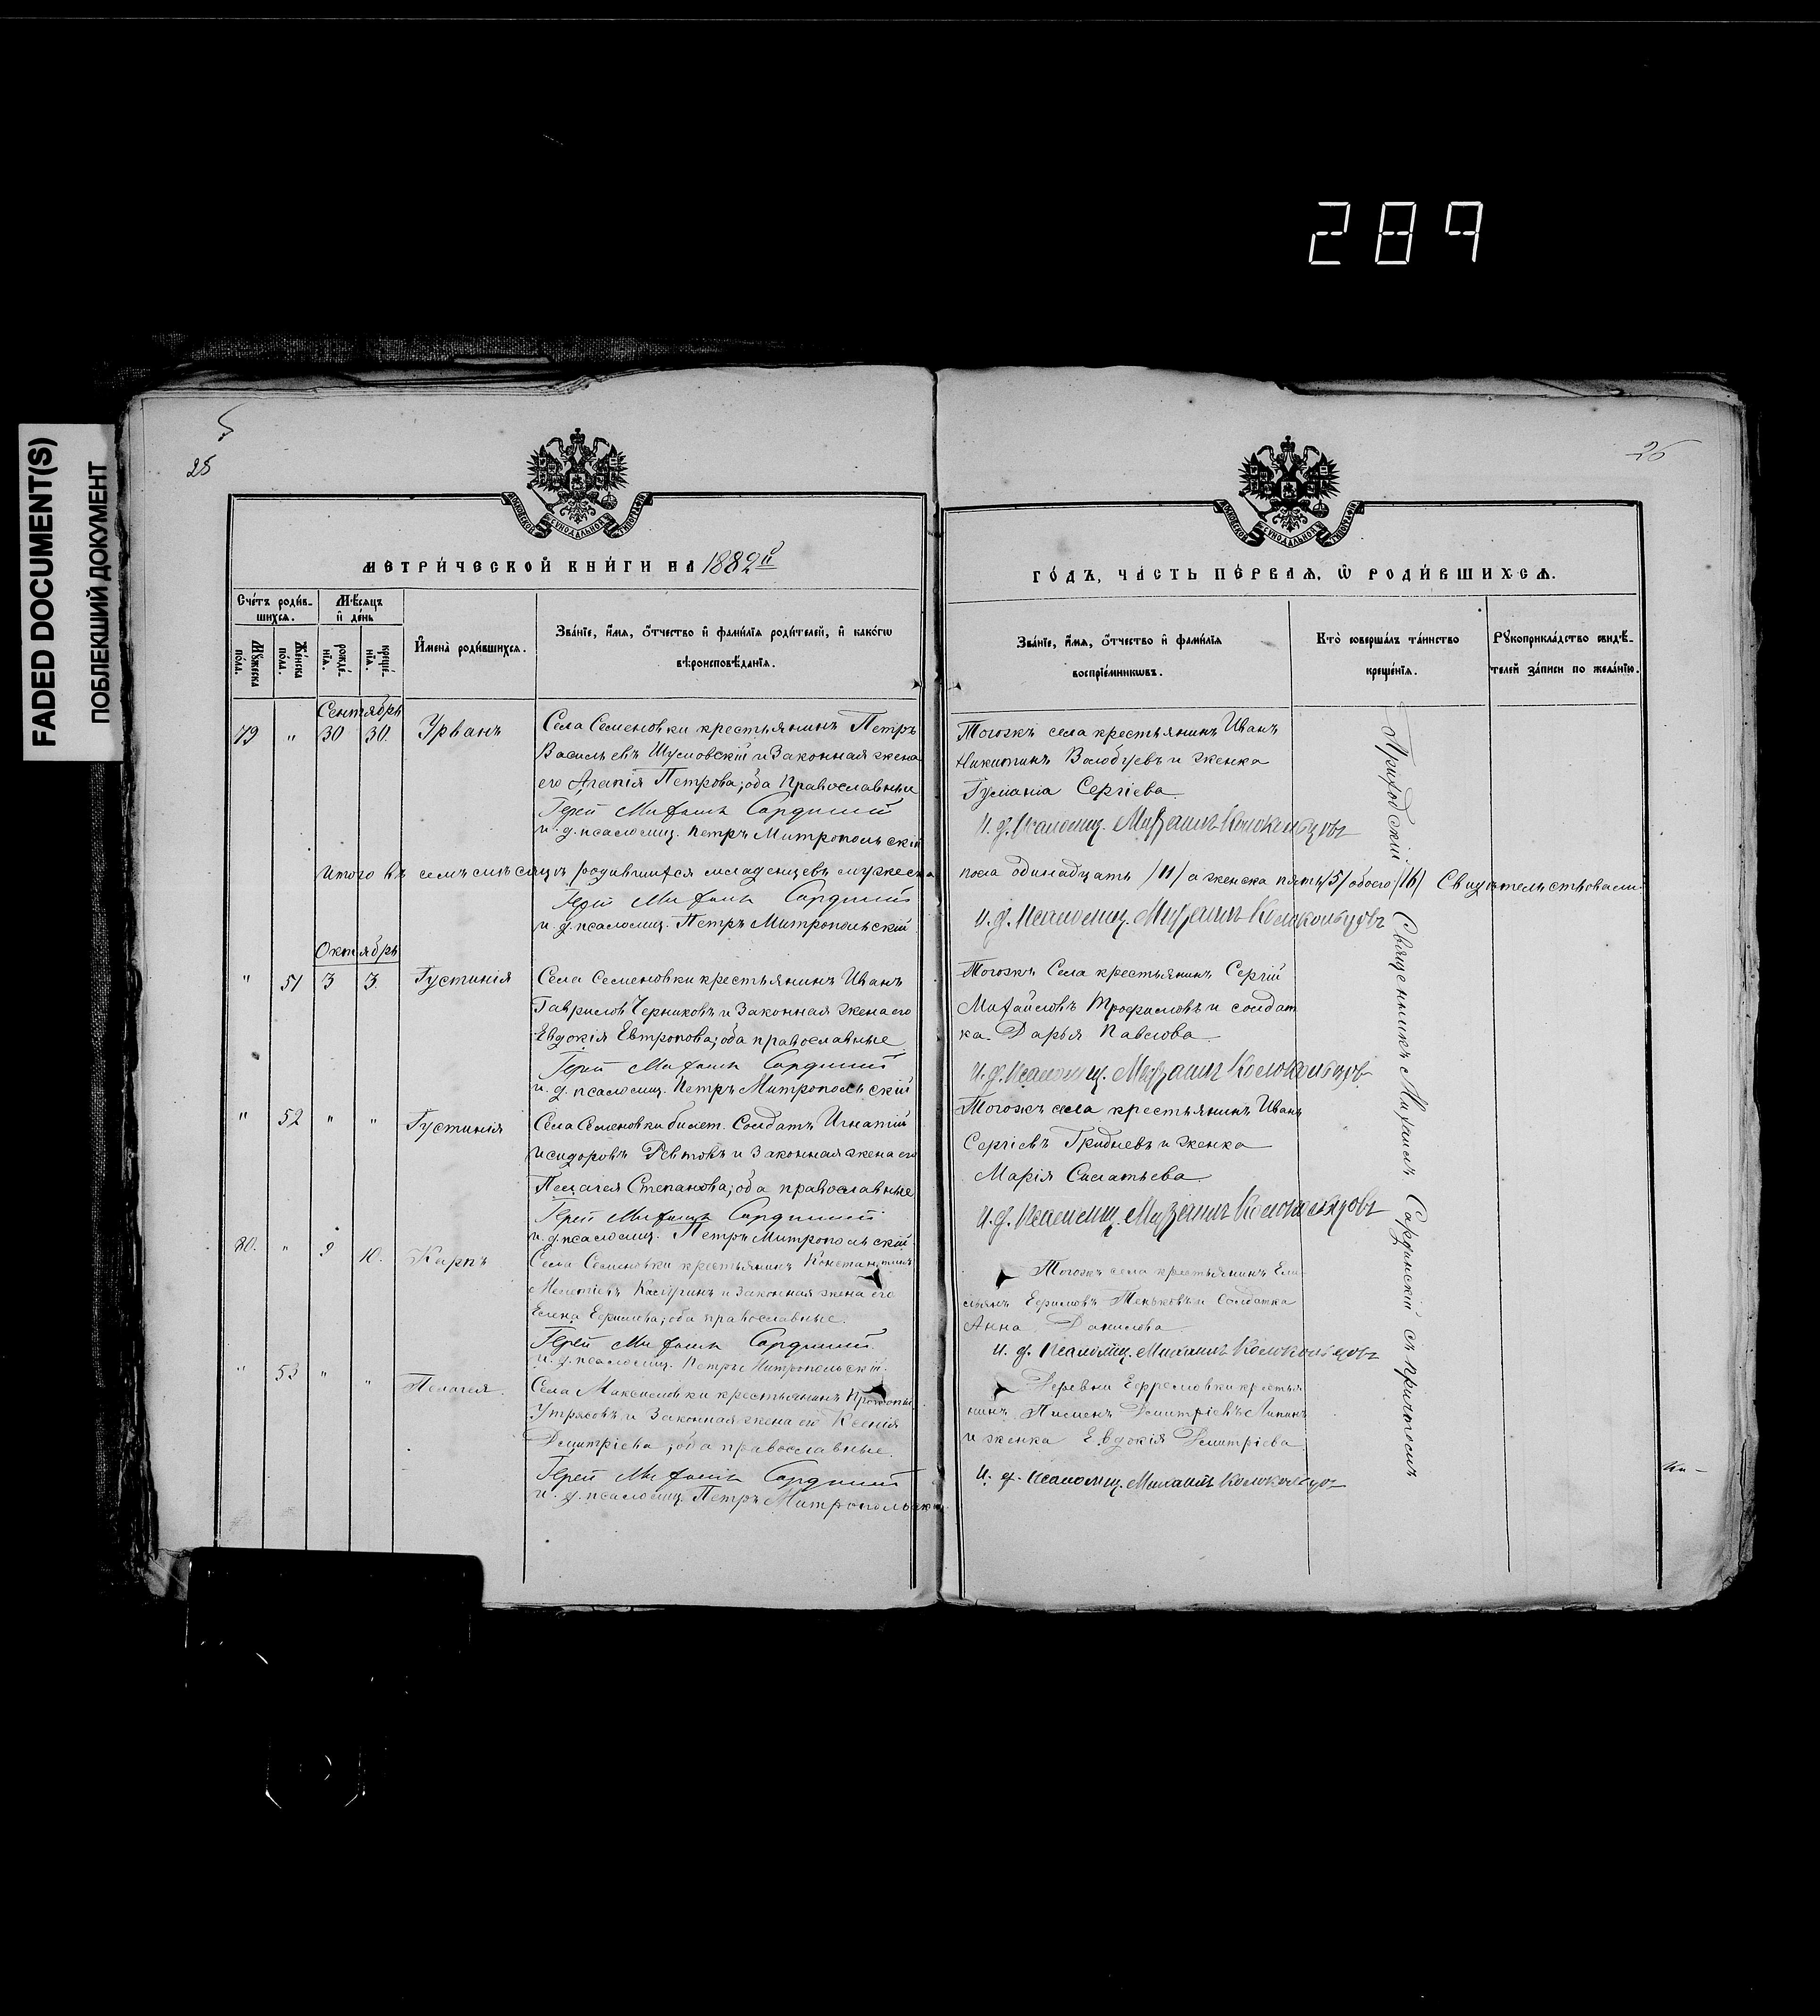 289
FADED DOCUMENT(S)
ПОБЛЕКШИЙ ДОКУМЕНТ
25
26
МОСКОВСКОЙ СѴНОДАЛЬНОЙ ТИПОГРАФІИ
МОСКОВСКОЙ СѴНОДАЛЬНОЙ ТИПОГРАФІИ
МЕТРИ́ЧЕСКОЙ КНИ́ГИ НА 1882й
Сче́тъ роди́в-
шихся.
Мѣ́сяцъ
и҆ де́нь
Мꙋ́жеска
по́ла.
Же́нска
по́ла.
рожде́-
нїѧ.
креще́-
нїѧ.
И҆мена̀ роди́вшихсѧ.
Зва́нїе, и҆́мѧ, ѻ҆́тчество и҆ фами́лїѧ роди́телей, и҆ како́гѡ
вѣроисповѣ́данїѧ.
Сентябрь
79 " 30 30. Урванъ
Села Семеновки крестьянинъ Петръ
Васильевъ Шумовскій и Законная жена
его Агапія Петрова; оба Православные
Іерей Михаилъ Сардинскій
и. д. псаломщ. Петръ Митропольскій
Итого въ семъ мѣсяцѣ родившихся младенцевъ мужеска
Іерей Михаилъ Сардинскій
и. д. псаломщ. Петръ Митропольскій
Октябрь
" 51 3 3. Іустинія
Села Семеновки крестьянинъ Иванъ
Гавриловъ Черниковъ и Законная жена его
Евдокія Евтропова; оба православные
Іерей Михаилъ Сардинскій
и. д. псаломщ. Петръ Митропольскій
" 52 " " Іустинія
Села Семеновки билет. Солдатъ Игнатій
Исидоровъ Ревтовъ и Законная жена его
Пелагея Степанова; оба православные
Іерей Михаилъ Сардинскій
и. д. псаломщ. Петръ Митропольскій
80. " 9 10. Карпъ
Села Семеновки крестьянинъ Константинъ
Мелетіевъ и Законная жена его
Елена Ефимова; оба православные.
Іерей Михаилъ Сардинскій
и. д. псаломщ. Петръ Митропольскій
" 53 " " Пелагея.
Села Максимовки крестьянинъ Прокопій
Утрясовъ и Законная жена его Ксенія
Димитріева; оба православные.
Іерей Михаилъ Сардинскій
и. д. псаломщ. Петръ Митропольскій
ГО́ДЪ, ЧА́СТЬ ПЕ́РВАѦ, Ѡ҆ РОДИ́ВШИХСѦ.
Зва́нїе, и҆́мѧ, ѻ҆́тчество и҆ фами́лїѧ
воспрїе́мникѡвъ.
Кто̀ соверша́лъ та́инство
креще́нїѧ.
Рꙋкоприкла́дство свидѣ́-
телей за́писи по жела́нїю.
Тогожъ села крестьянинъ Иванъ
Никитинъ Волобуевъ и женка
Сергіева
И. д. Псаломщ. Михаилъ Колокольцовъ
пола одинадцать /11/ а женска пять /5/ обоего /16/ Свидѣтельствовали
И. д. Псаломщ. Михаилъ Колокольцовъ
Тогожъ Села крестьянинъ Сергій
Михайловъ Трофимовъ и солдат
ка Дарья Павлова
И. д. Псаломщ. Михаилъ Колокольцовъ
Тогожъ села крестьянинъ Иванъ
Сергіевъ Гридневъ и женка
Марія
И. д. Псаломщ. Михаилъ Колокольцовъ
Тогожъ села крестьянинъ Еми
льянъ Ефимовъ Теньковъ и Солдатка
Анна Данилова
И. д. Псаломщ. Михаилъ Колокольцовъ
Деревни Ефремовки крестья
нинъ Пименъ Димитріевъ Липинъ
и женка Евдокія Димитріева
И. д. Псаломщ. Михаилъ Колокольцовъ
Приходскій Священникъ Михаилъ Сардинскій съ причтомъ